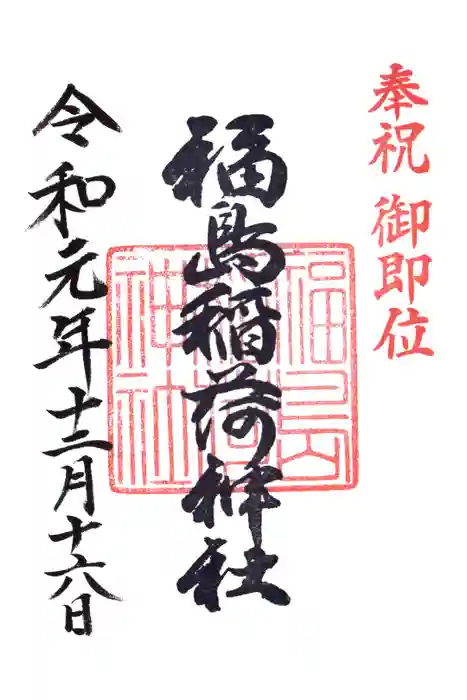 奉祝 御即位
福島稲荷神社
福島
稲荷
神社
令和元年十二月十六日